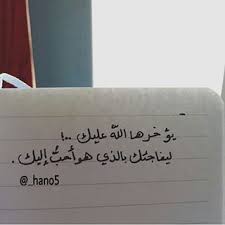 يؤخرها اللّٰه عليك ..!
ليفاجئك بالذي هو أحبُّ إليك .
@_hano5